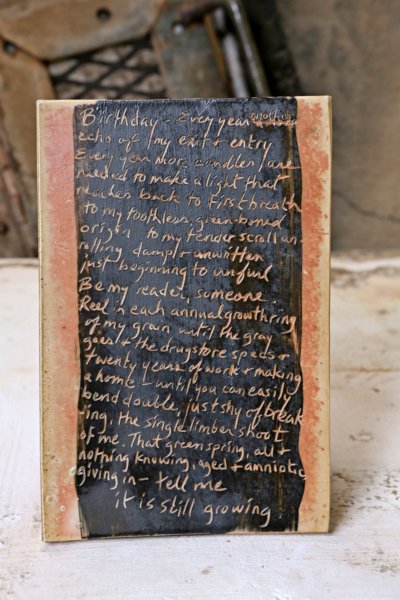 Birthday - Every year another
echo of my exit & entry
Every year more candles are
needed to make a light that
reaches back to first breath
to my toothless, green-boned
origin to my tender scroll un-
rolling damp & unwritten
just beginning to unfurl
Be my reader, someone.
Reel in each annual growth ring
of my grain until the gray
goes & the drugstore specs &
twenty years of work & making
a home - until you can easily
bend double, just shy of break
-ing, the single limber shoot
of me. That green spring, all &
nothing knowing, aged & amniotic
giving in - tell me
it is still growing